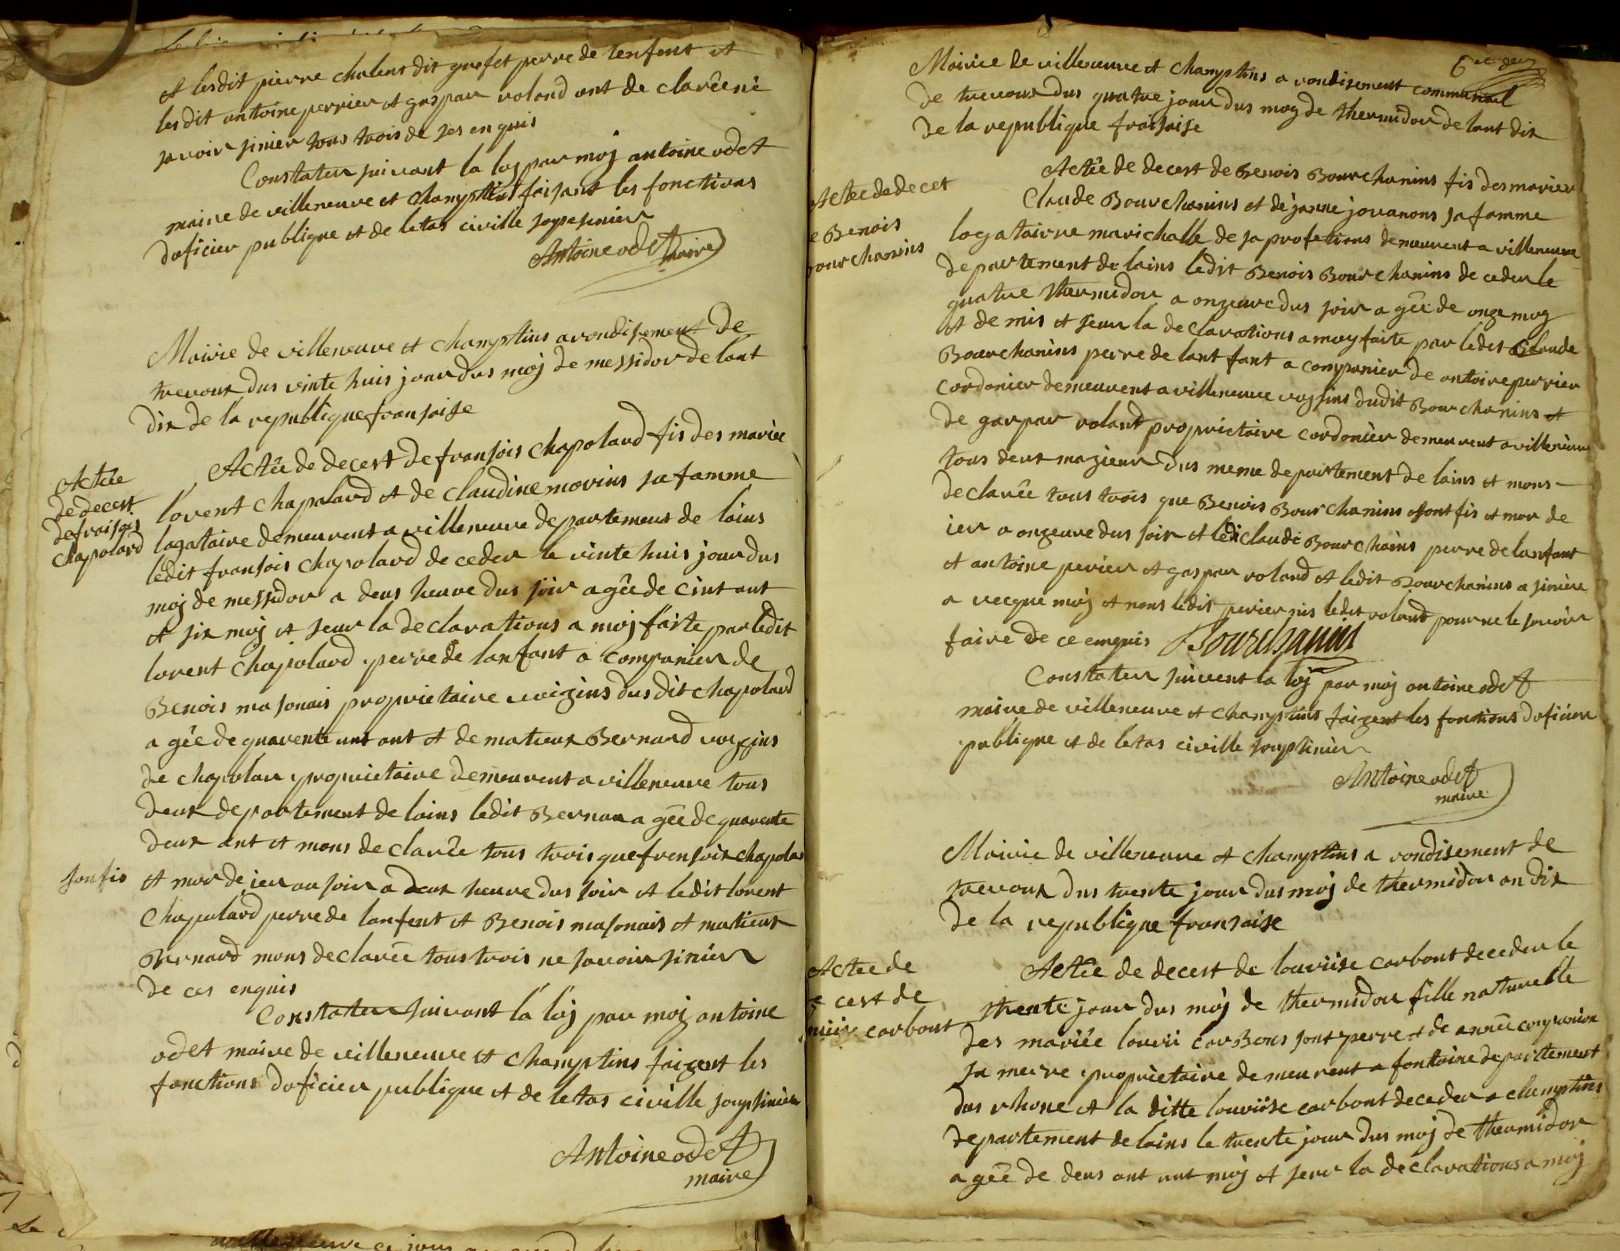 et lesdit pierre chalent dit gnofet perre de lenfent et
lesdit antoine perrier et gaspar roland ont de clarée nè
savoir sinier tous trois de ses enquis
Constater suivant la loj par moj antoine odet
maire de villeneuve et champtins faisant les fonctions
doficier publique et de letas civille sousinier
Antoine odet
maire
Mairie de villeneuve et champtins arondisement de
trevoux dus vinte huis jour dus moj de messidor de lant
dix de la republique fransaise
Actée de decest de fransois chapolard fis des mariée
Actée
de decest
de fraisoes
chapolard
lorent chapalard et de claudine morins sa famme
lagataire demeurent a villeneuve departement de lains
ledit fransois chapolard de ceder le vinte huis jour dus
moj de messidor a deus heure dus soir agée de cint ant
et six moj et seur la declarations a moj faite par ledit
lorent chapolard perre de lanfant a companier de
Benois masonais proprietaire voizins dus dit chapolard
a gée de quarente unt ant et de matieux Bernard voizins
de chapolar proprietaire demeurent a villeneuve tous
deux departement de lains ledit Bernar a gée de quarente
deux ant et mons de clarée tous trois que fransoix chapolar
son fis
et mor de ier au soir a deux heure dus soir et ledit lorent
Chapalard perre de lanfent et Benois masonais et matieux
Bernard mons declarée tous trois ne savoir sinier
de ces enquis
Constater suivant la loj par moj antoine
odet maire de villeneuve et champtins faizent les
fonctions doficier publique et de letas civille sousinier
Antoine odet
maire
Mairie de villeneuve et champtins a rondisement communal
de trevoux dus quatre jour dus moy de thermidor de lant dix
de la republique fraisaise
Actée de decest de Benois Bourchanins fis des mariée
Actée de decet
e Benois
bourchanins
Claude Bourchanins et de janne jovanons sa famme
logataire marichalle de sa profetions demeurent a villeneuve
departement de lains ledit Benois Bourchanins de ceder le
quatre thermidor a onzeure dus soir a gée de onze moy
et de mis et seur la declarations a moy faite par ledet Claude
Bourchanins perre de lant fant a companier de antoine perrier
cordonier demeurent a villeneuve voissins dudit Bourchanins et
de gaspar roland proprietaire cordonier demeurent a villeneuve
tous deux mazieur dus meme departement de lains et mons
declarée tous trois que Benois Bourchanins sont fis et mor de
ier a onzeure dus soir et ledi claude Bourchains perre de lanfant
et antoine perier et gaspar roland et ledit Bourchanins a sinier
a vecque moj et nons ledit perier nis ledit roland pour ne le savoir
faire de ce enquis Bourchanin
Constater suivent la loj par moj antoine odet
maire de villeneuve et champtins faizent les fonctions doficier
publique et de letas civille sousinier
Antoine odet
maire
Mairie de villeneuve et champtins a rondisement de
trevoux dus trente jour dus moj de thermidor an dix
de la republique fransaise
Actée de decest de louviise carbont deceder le
Actée de
e cest de
carbont
thente jour dus moj de thermidor fille naturelle
des mariée louvii carBons sont perre et de année companion
sa merre proprietaire demeurent a fontaine departement
dus rhone et la ditte louviise carbont deceder a champtins
departement de lains le trente jour dus moj de thermidor
a gée de deus ant unt moj et seur la declarations a moj